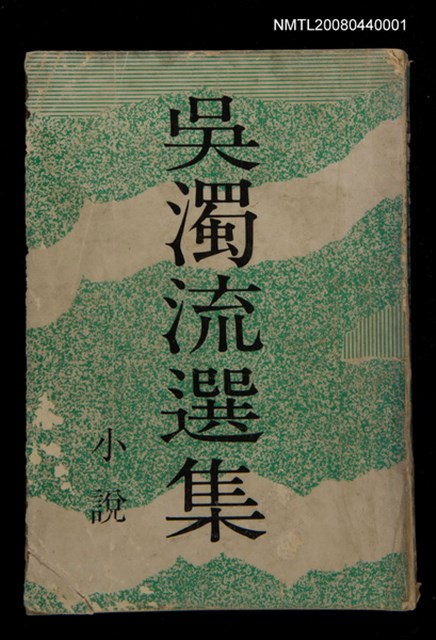 NMTL20080440001
吳濁流選集
小說